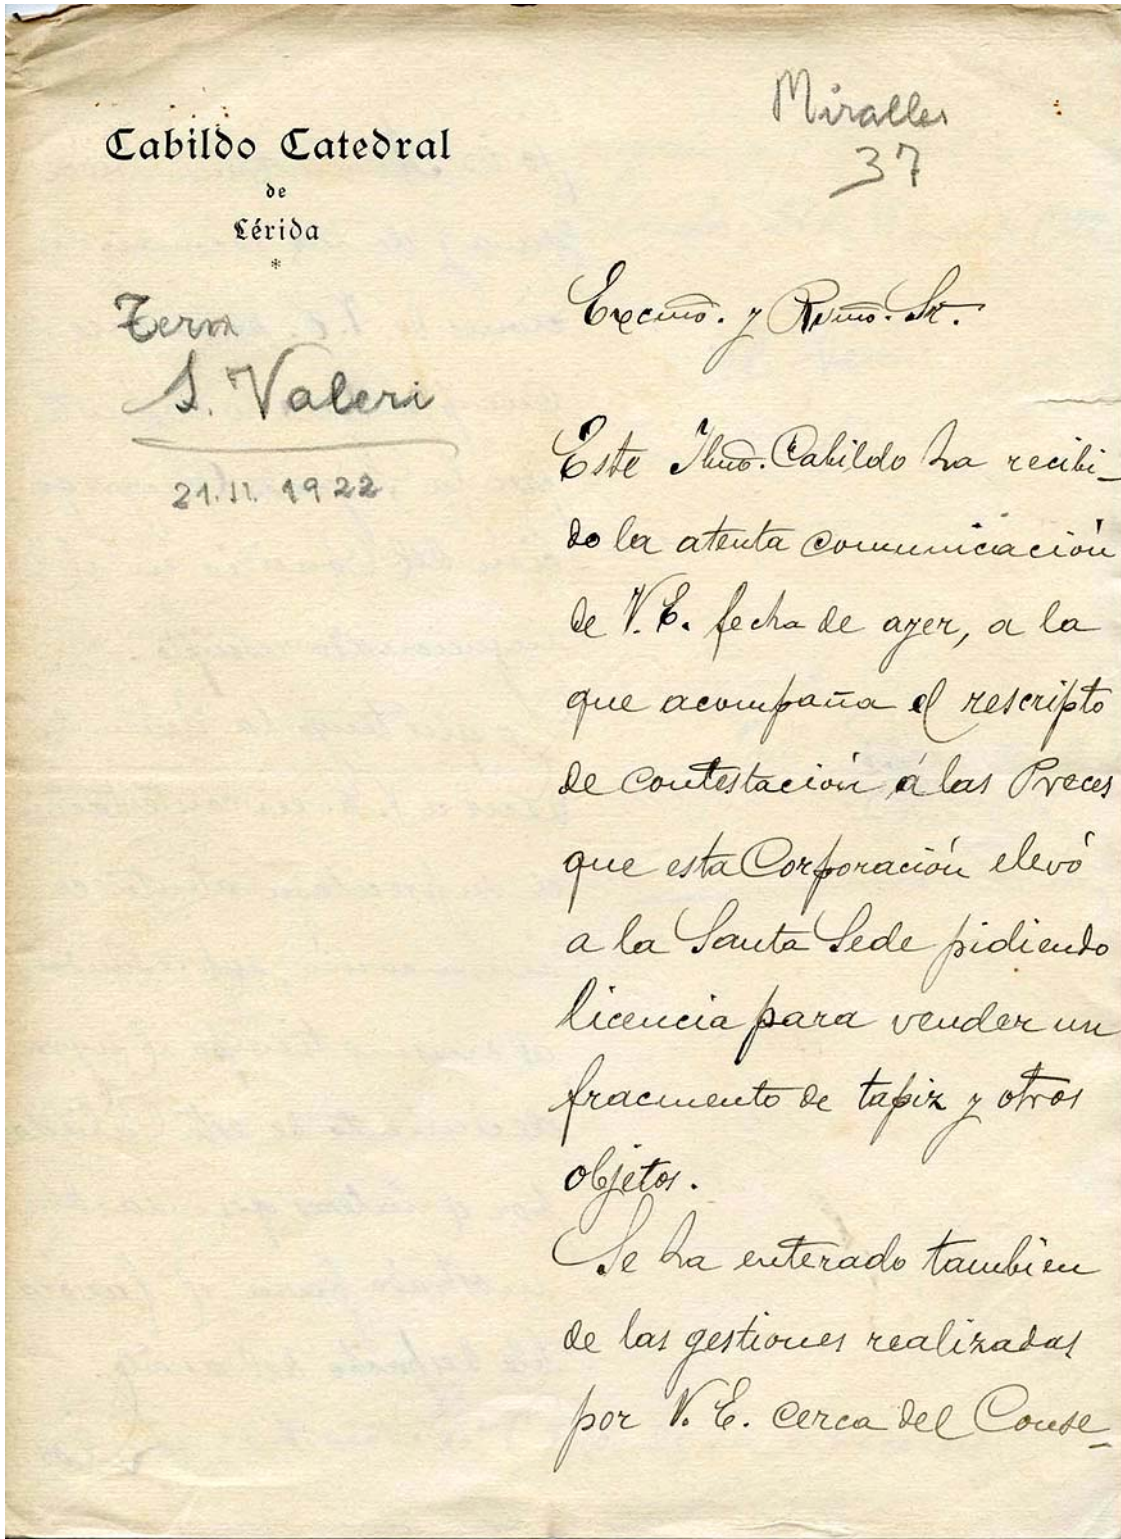 Cabildo Catedral
de
Lérida
*
Miralles
37
Tern
S. Valeri
21.II.1922
Excmo. y Rvmo. Sr.
Este Iltmo. Cabildo ha recibi-
do la atenta comunicación
de V.E. fecha de ayer, a la
que acompaña el rescripto
de contestación á las Preces
que esta Corporación elevó
a la Santa Sede pidiendo
licencia para vender un
fracmento de tapiz y otros
objetos.
Se ha enterado tambien
de las gestiones realizadas
por V.E. cerca del Conse-